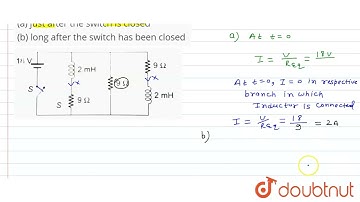 (a) just after the switch is closed
(b) long after the switch has been closed
a) At t=0
I = V/Req = 18V
18 V
2 mH
9 Ω
9 Ω
9 Ω
2 mH
S
S
x
x
At t=0, I=0 in respective
branch in which
Inductor is connected
I = V/Req = 18/9 = 2A
b)
doubtnut